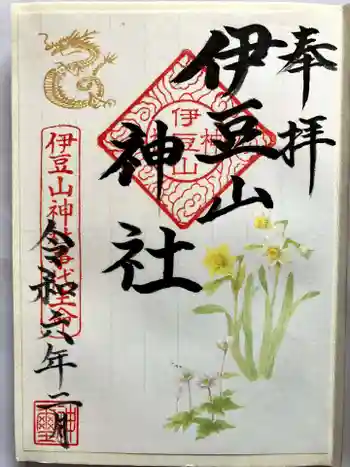 奉拝
伊豆山
神社
伊豆山
神
伊豆山神
令和六年二月